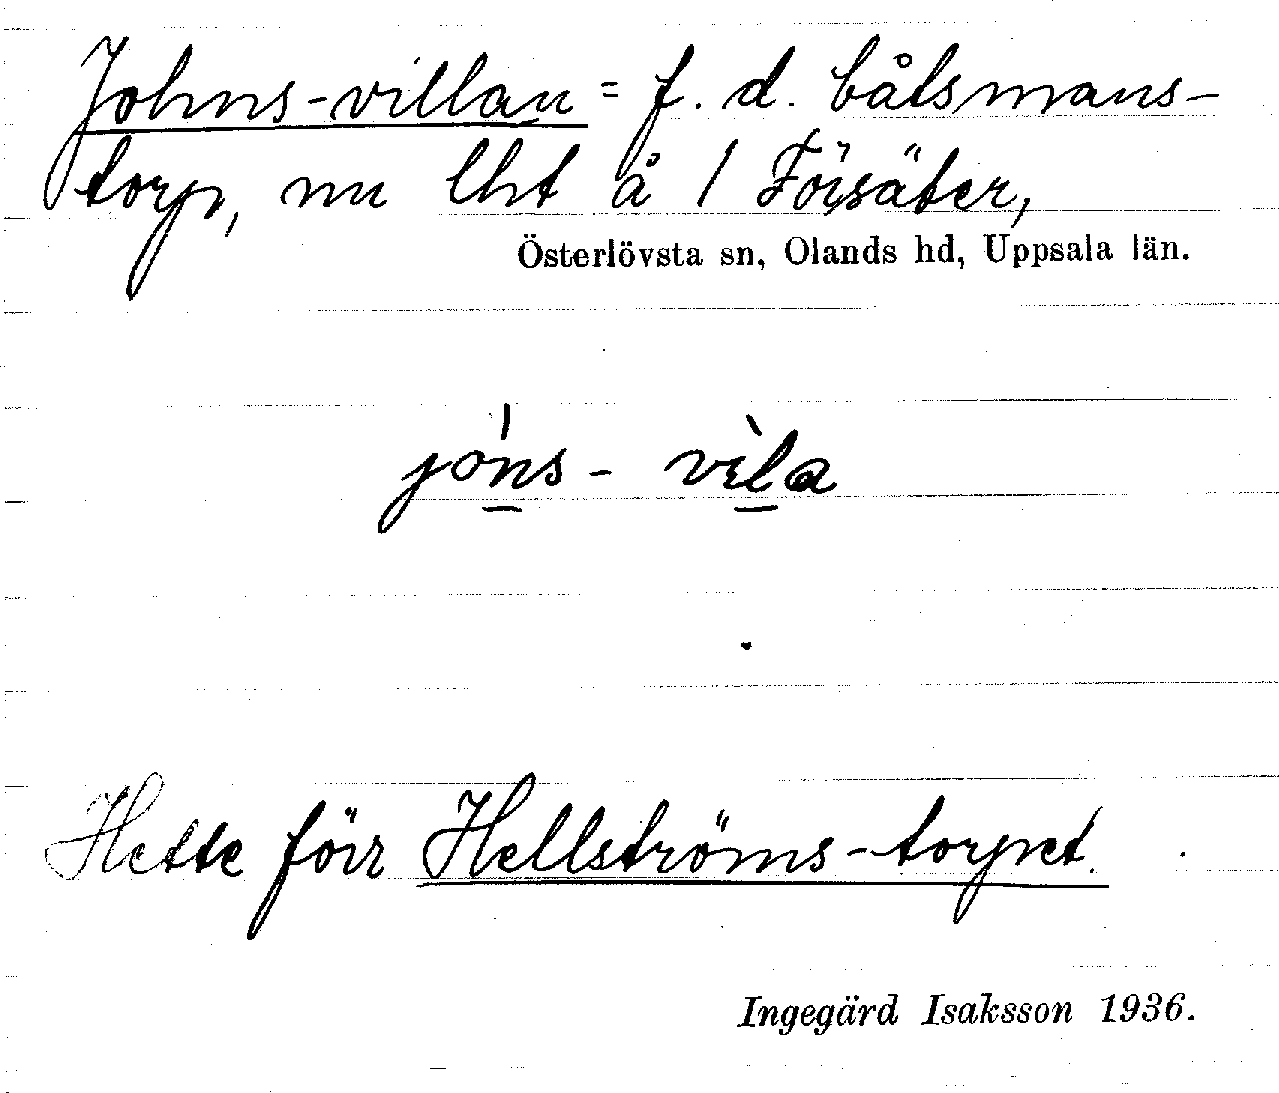 Johns-villan = f. d. båtsmans-
torp, nu lht å 1 Försäter,
Österlövsta sn, Olands hd, Uppsala län.
jo̱ns - vìla
Hette förr Hellströms-torpet.
Ingegärd Isaksson 1936.